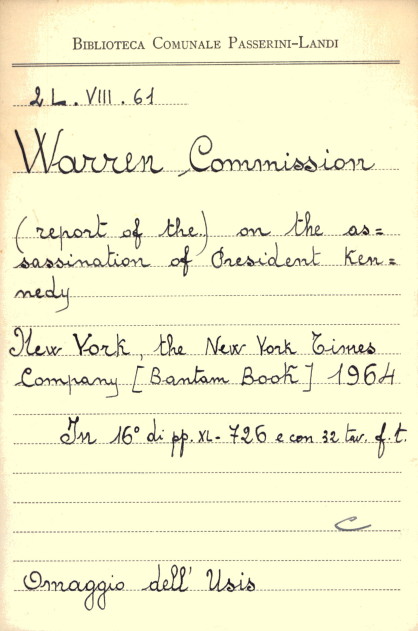 BIBLIOTECA COMUNALE PASSERINI-LANDI
2 L. VIII. 61
Warren Commission
(report of the) on the as=
sassination of President Ken=
nedy
New York, the New York Times
Company [Bantam Book] 1964
In 16° di pp. XL - 726 e con 32 tav. f. t.
C
Omaggio dell' Usis